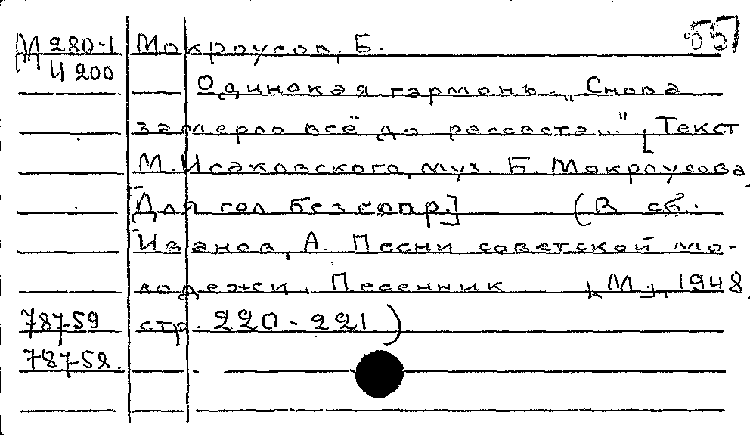 М 280-1 Мокроусов, Б. 557
И 200
Одинокая гармонь. „Снова
замерло всё до рассвета..." [Текст
М. Исаковского, муз. Б. Мокроусова,
[Для гол. без сопр.] (В сб.
[Иванов, А. Песни советской мо-
лодежи. Песенник [М], 1948,
787-59 стр. 220-221)
787-52.